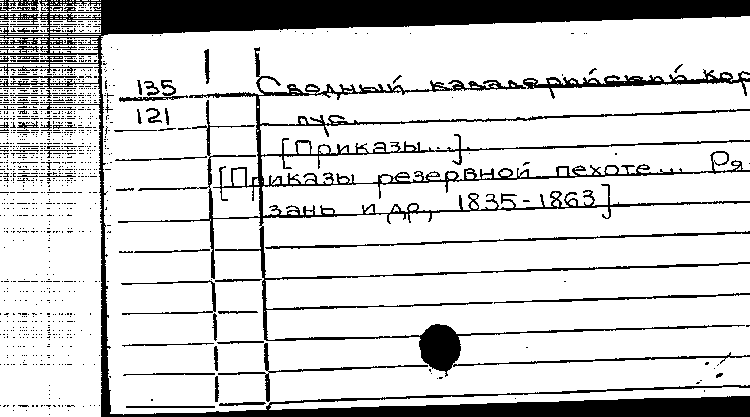 135 Сводный кавалерийский кор
121 пус.
[Приказы...].
[Приказы резервной пехоте... Ря-
зань и др, 1835-1863]